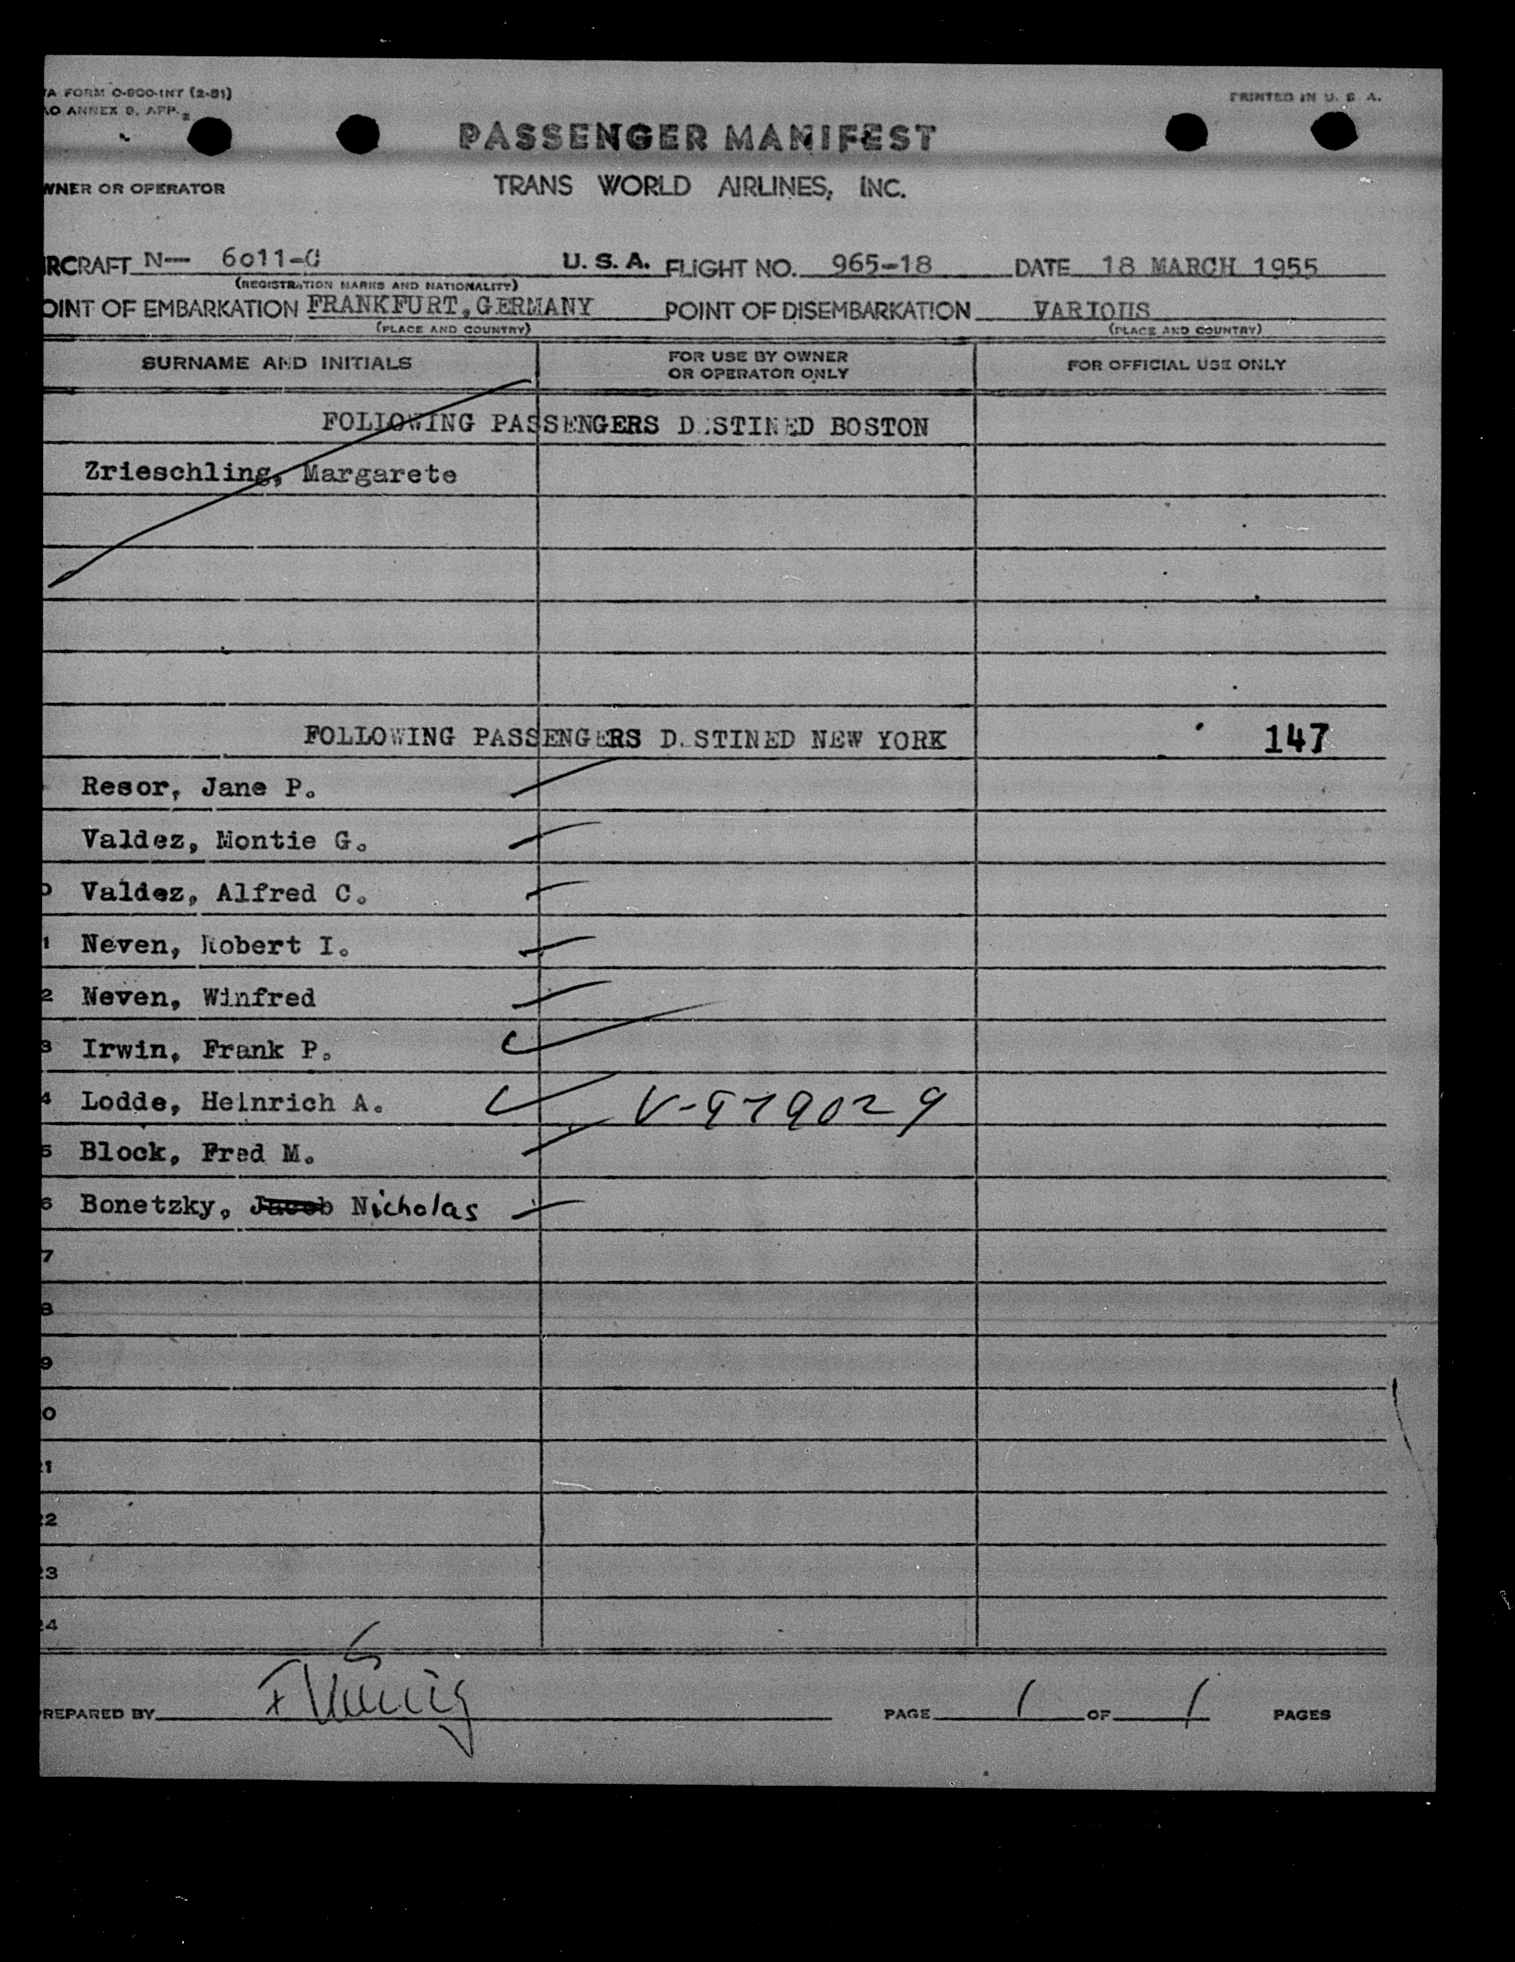 A FORM O-800-INT (2-51) PRINTED IN U. S. A.
AO ANNEX 9, APP. 2
PASSENGER MANIFEST
WNER OR OPERATOR TRANS WORLD AIRLINES, INC.
IRCRAFT N— 6011-C U. S. A. FLIGHT NO. 965-18 DATE 18 MARCH 1955
(REGISTRATION MARKS AND NATIONALITY)
OINT OF EMBARKATION FRANKFURT, GERMANY POINT OF DISEMBARKATION VARIOUS
(PLACE AND COUNTRY) (PLACE AND COUNTRY)
SURNAME AND INITIALS FOR USE BY OWNER OR OPERATOR ONLY FOR OFFICIAL USE ONLY
FOLLOWING PASSENGERS DESTINED BOSTON
Zrieschling, Margarete
FOLLOWING PASSENGERS DESTINED NEW YORK 147
Resor, Jane P.
Valdez, Montie G.
0 Valdez, Alfred C.
1 Neven, Robert I.
2 Neven, Winfred
3 Irwin, Frank P.
4 Lodde, Heinrich A. V-979029
5 Block, Fred M.
6 Bonetzky, Jacob Nicholas
7
8
9
0
21
22
23
24
PREPARED BY PAGE 1 OF 1 PAGES